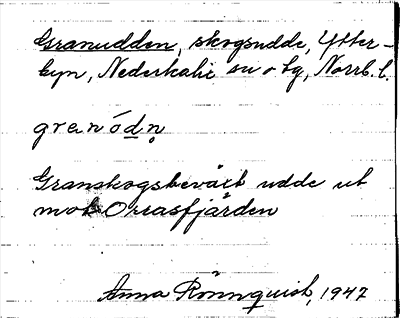 Granudden, skogsudde, Ytter-
byn, Nederkalix sn o tg, Norrb. l.
granód̲n̥
Granskogsbeväxt udde ut
mot Orrasfjärden
Anna Rönnquist, 1947